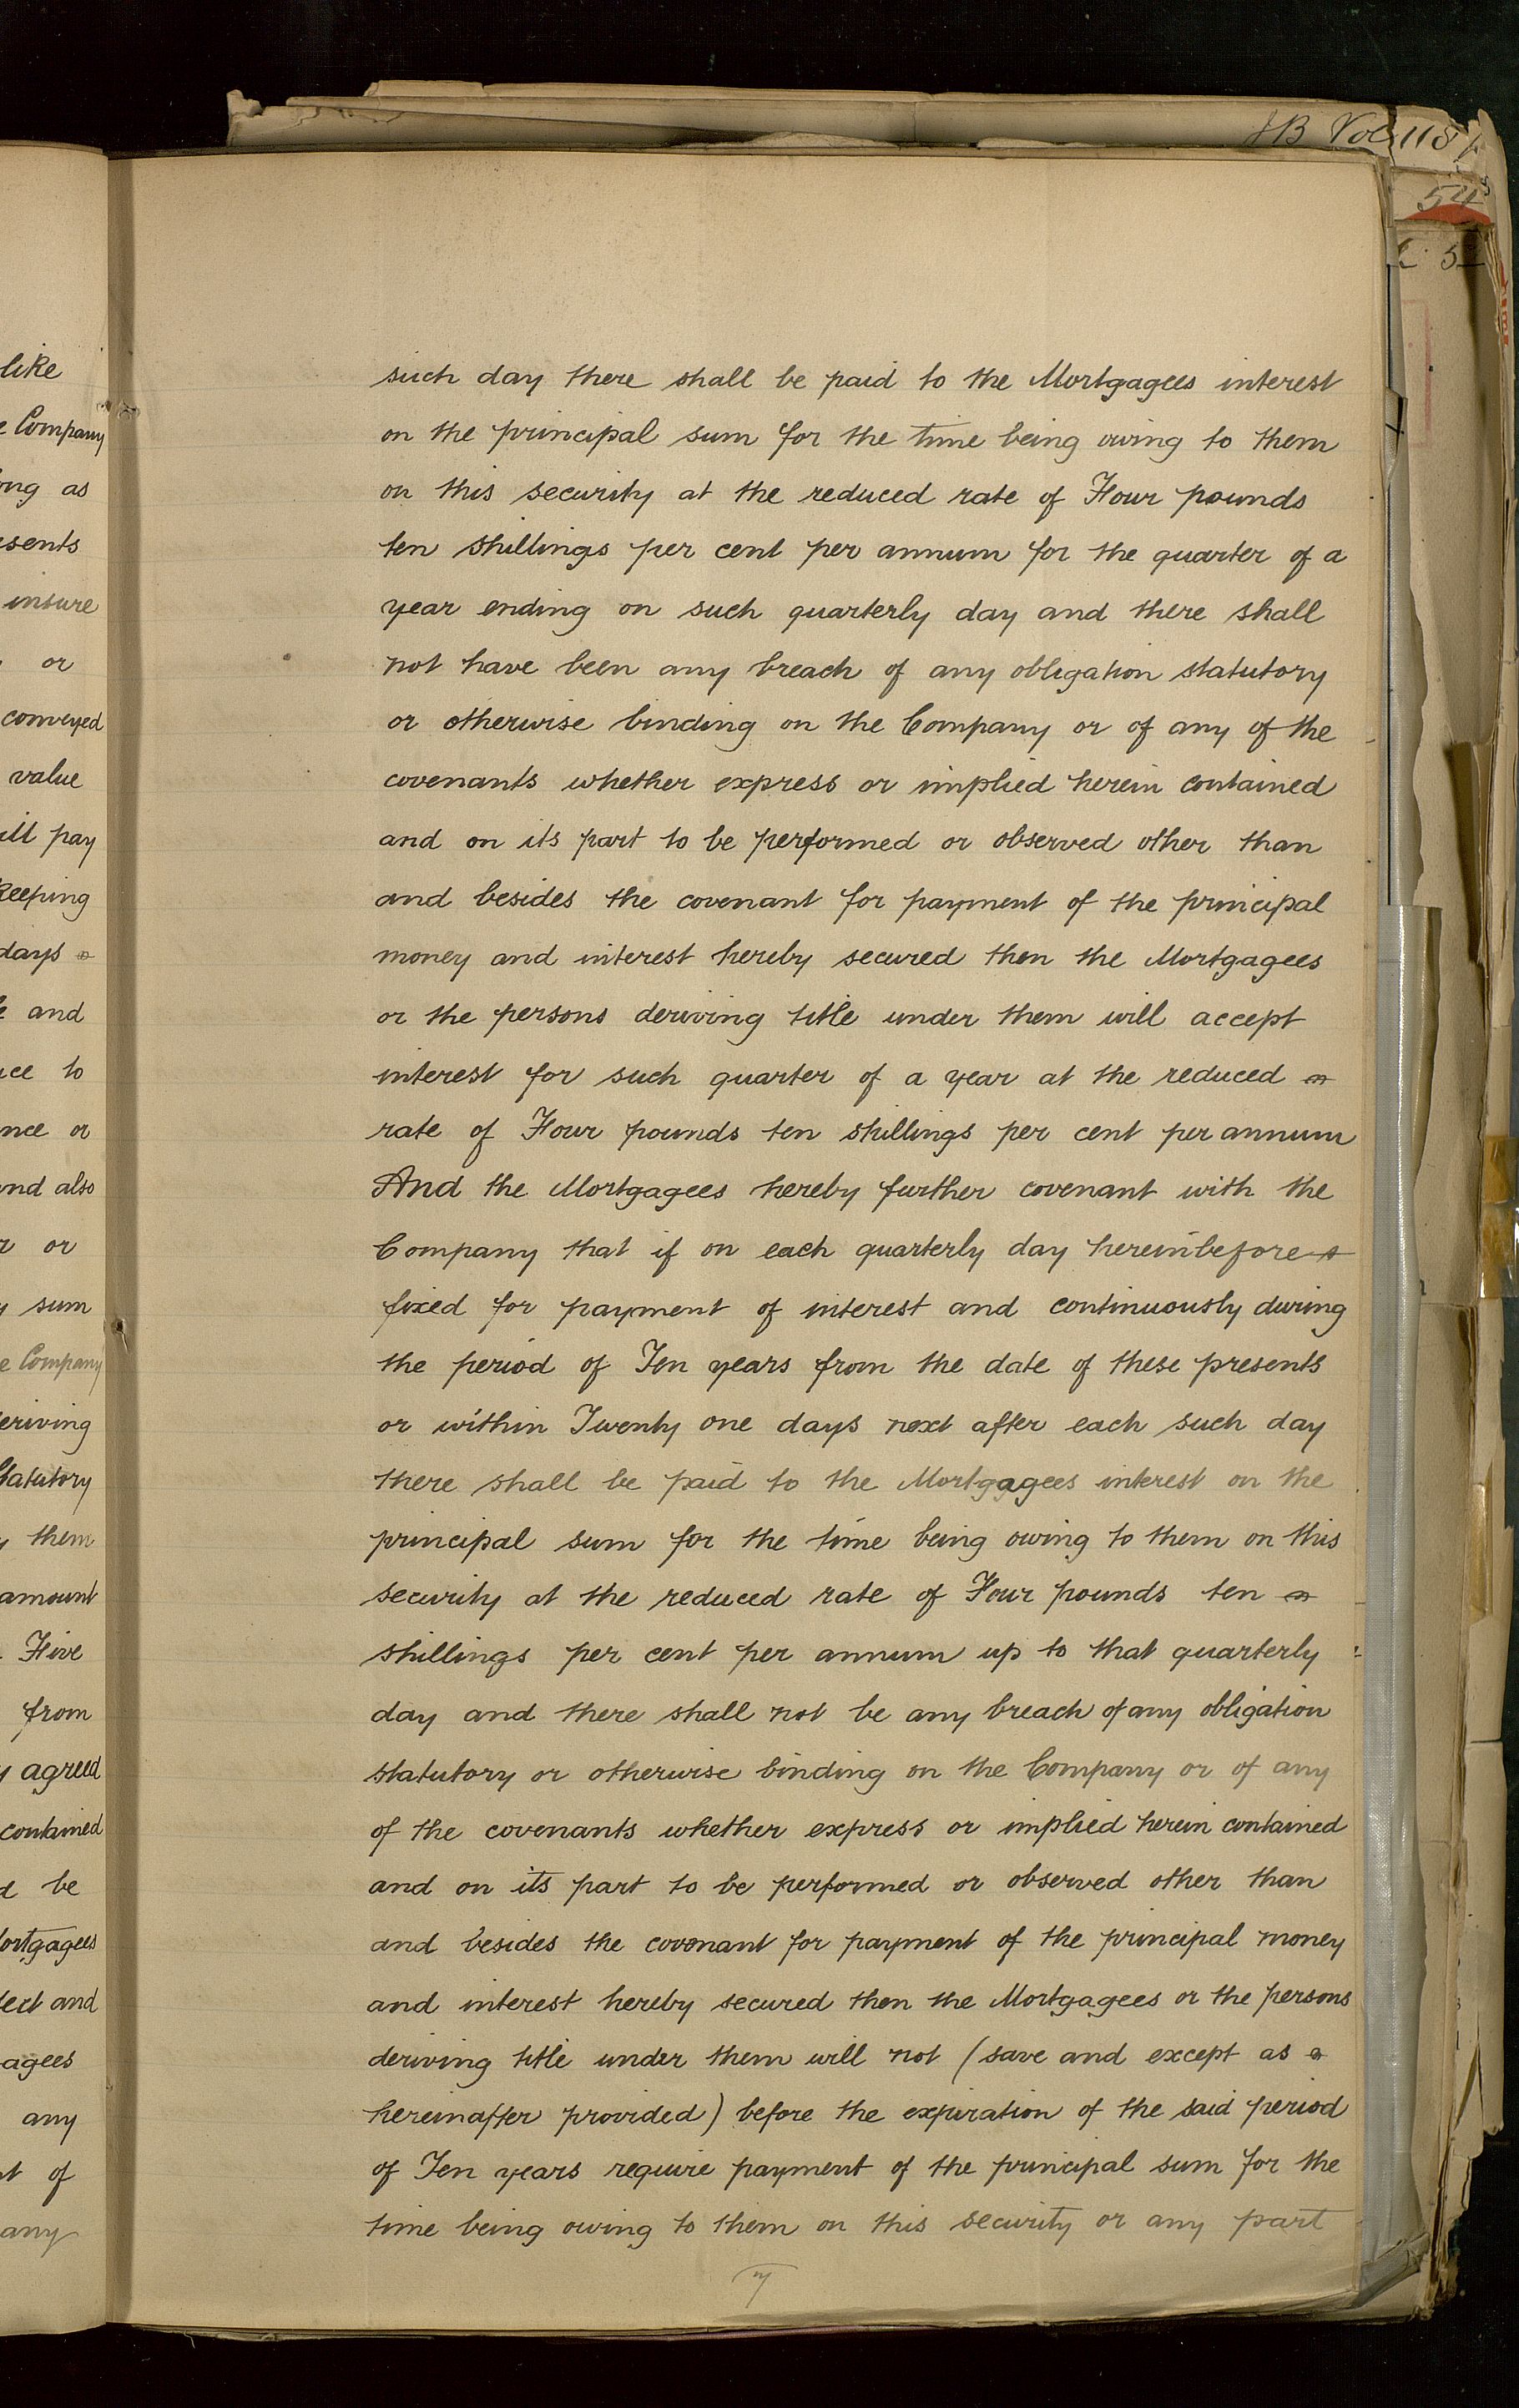 JB Vol 118
54
5
like
Company
as
insure
or
conveyed
value
pay
Keeping
days
and
to
or
and also
or
sum
Company
deriving
Statutory
them
amount
Five
from
agreed
contained
be
Mortgagees
and
any
of
any
such day there shall be paid to the Mortgagees interest
on the principal sum for the time being owing to them
on this security at the reduced rate of Four pounds
ten shillings per cent per annum for the quarter of a
year ending on such quarterly day and there shall
not have been any breach of any obligation statutory
or otherwise binding on the Company or of any of the
covenants whether express or implied herein contained
and on its part to be performed or observed other than
and besides the covenant for payment of the principal
money and interest hereby secured then the Mortgagees
or the persons deriving title under them will accept
interest for such quarter of a year at the reduced
rate of Four pounds ten shillings per cent per annum
And the Mortgagees hereby further covenant with the
Company that if on each quarterly day hereinbefore
fixed for payment of interest and continuously during
the period of Ten years from the date of these presents
or within Twenty one days next after each such day
there shall be paid to the Mortgagees interest on the
principal sum for the time being owing to them on this
security at the reduced rate of Four pounds ten
shillings per cent per annum up to that quarterly
day and there shall not be any breach of any obligation
statutory or otherwise binding on the Company or of any
of the covenants whether express or implied herein contained
and on its part to be performed or observed other than
and besides the covenant for payment of the principal money
and interest hereby secured then the Mortgagees or the persons
deriving title under them will not (save and except as
hereinafter provided) before the expiration of the said period
of Ten years require payment of the principal sum for the
time being owing to them on this security or any part
7